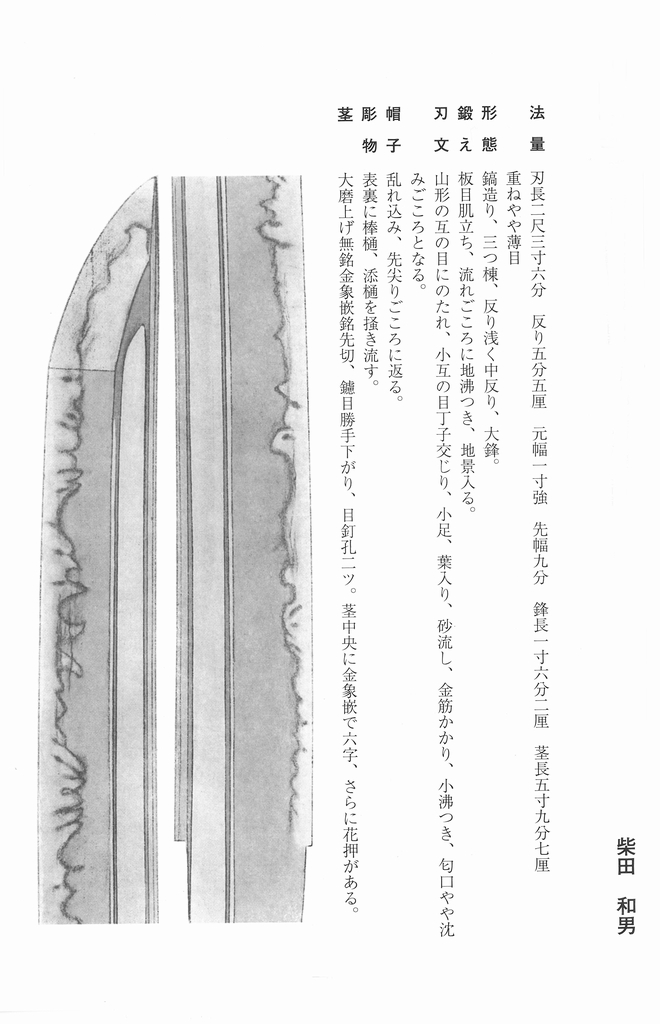 柴田 和男
法量 刃長二尺三寸六分 反り五分五厘 元幅一寸強 先幅九分 鋒長一寸六分二厘 茎長五寸九分七厘
重ねやや薄目
形態 鎬造り、三つ棟、反り浅く中反り、大鋒。
鍛え 板目肌立ち、流れごころに地沸つき、地景入る。
刃文 山形の互の目にのたれ、小互の目丁子交じり、小足、葉入り、砂流し、金筋かかり、小沸つき、匂口やや沈
みごころとなる。
帽子 乱れ込み、先尖りごころに返る。
彫物 表裏に棒樋、添樋を掻き流す。
茎 大磨上げ無銘金象嵌銘先切、鑢目勝手下がり、目釘孔二ツ。茎中央に金象嵌で六字、さらに花押がある。